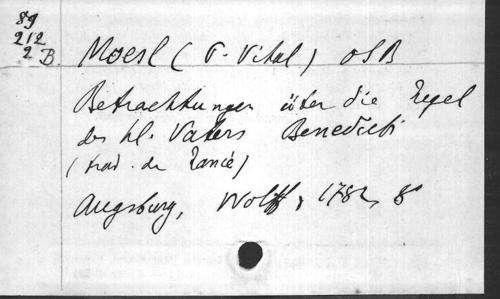 89
212
2 B.
Moesl (P. Vital) OSB
Betrachtungen über die Regel
des hl. Vaters Benedicti
(trad. de Rancé)
Augsburg, Wolff, 1782, 8°